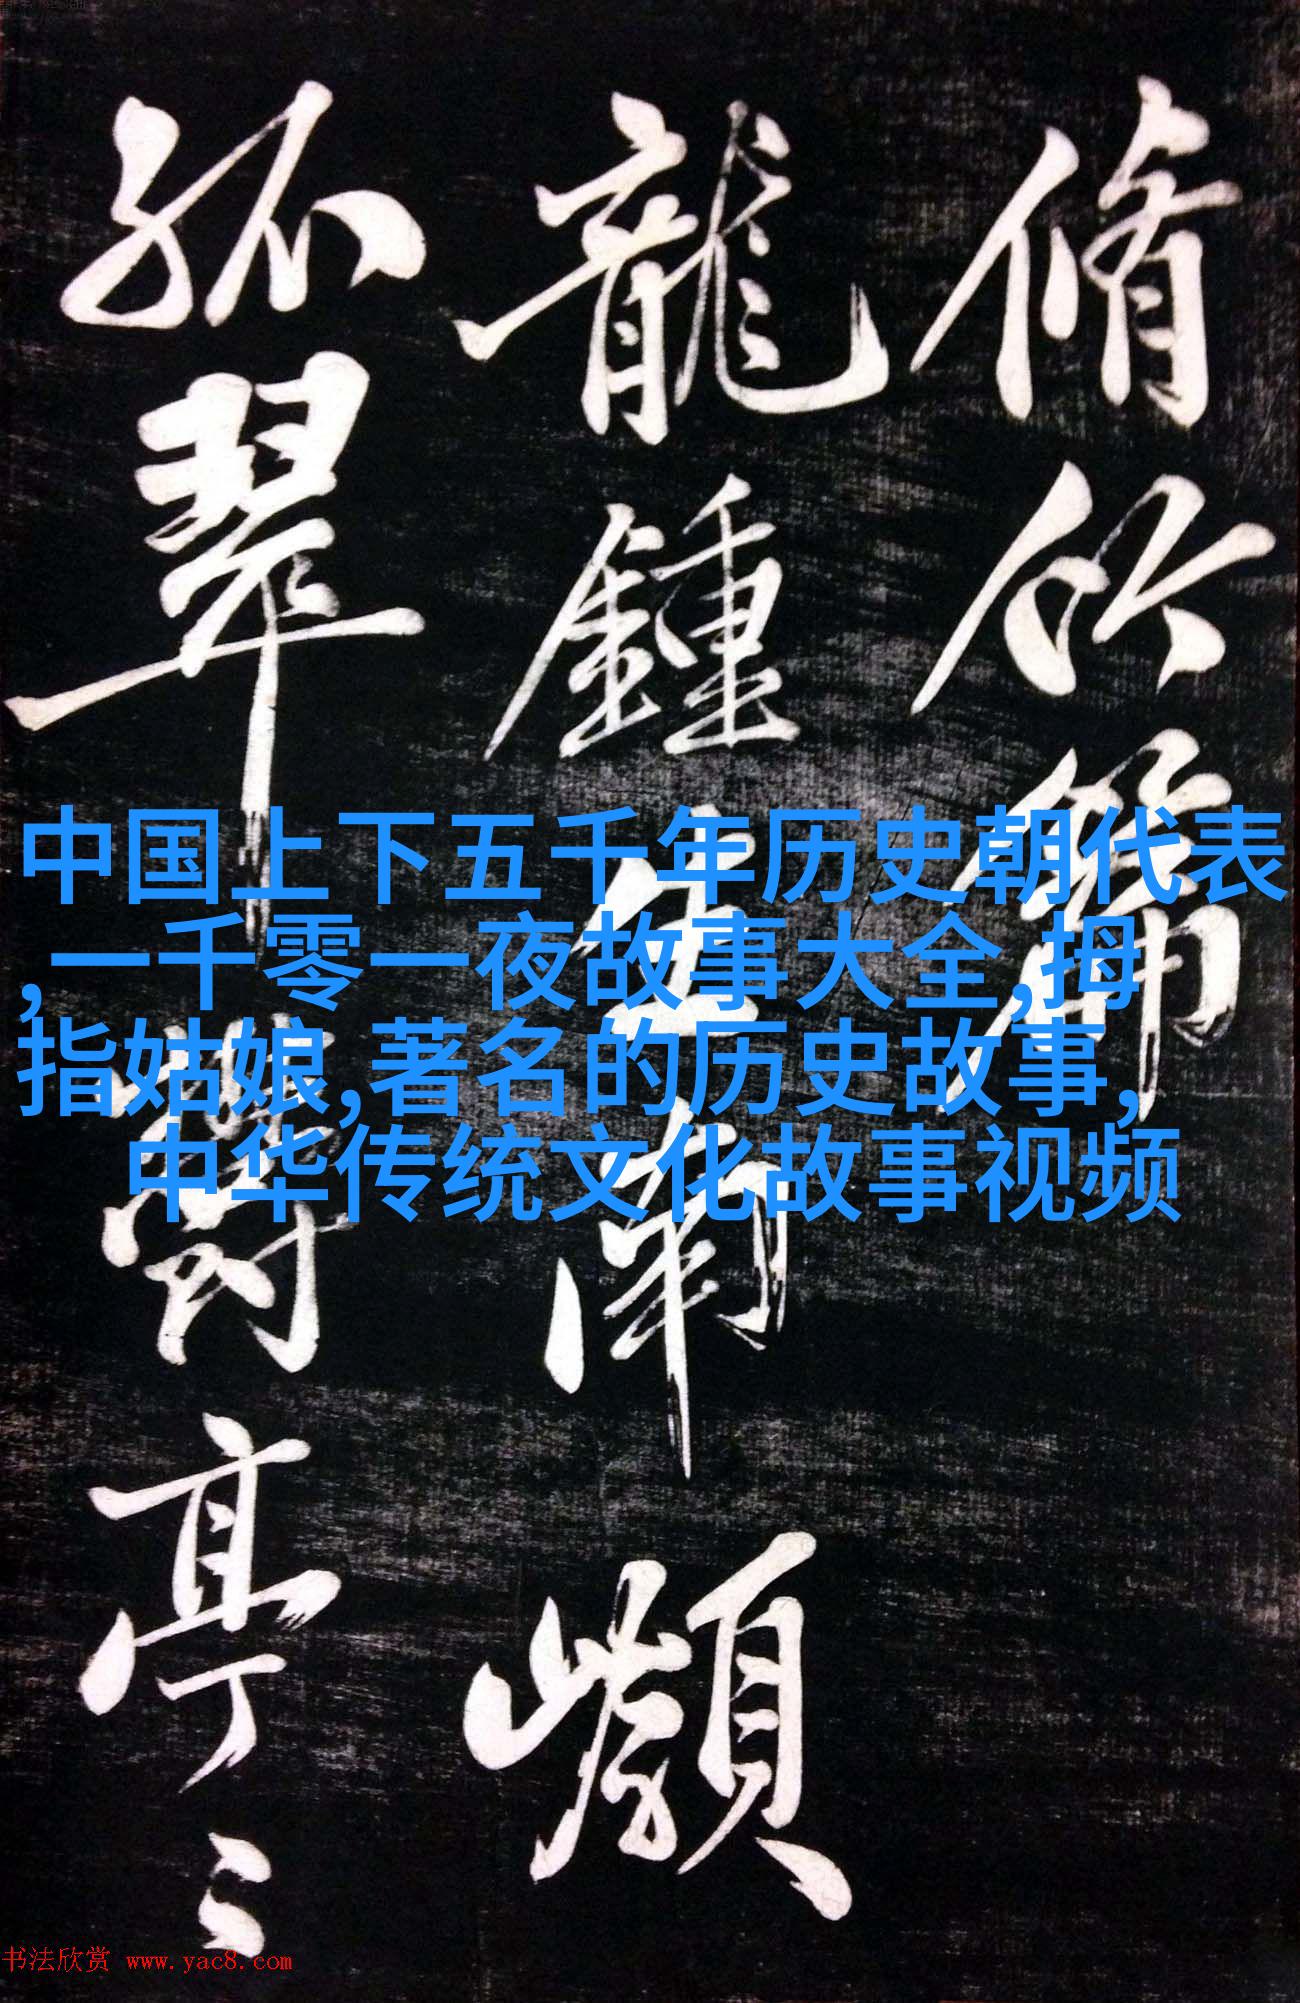 脩竹篇
龍鍾生南
孤翠鬱亭〻
中国上下五千年历史朝代表
,一千零一夜故事大全,拇
指姑娘,著名的历史故事,
中华传统文化故事视频
书法欣赏 www.yac8.com